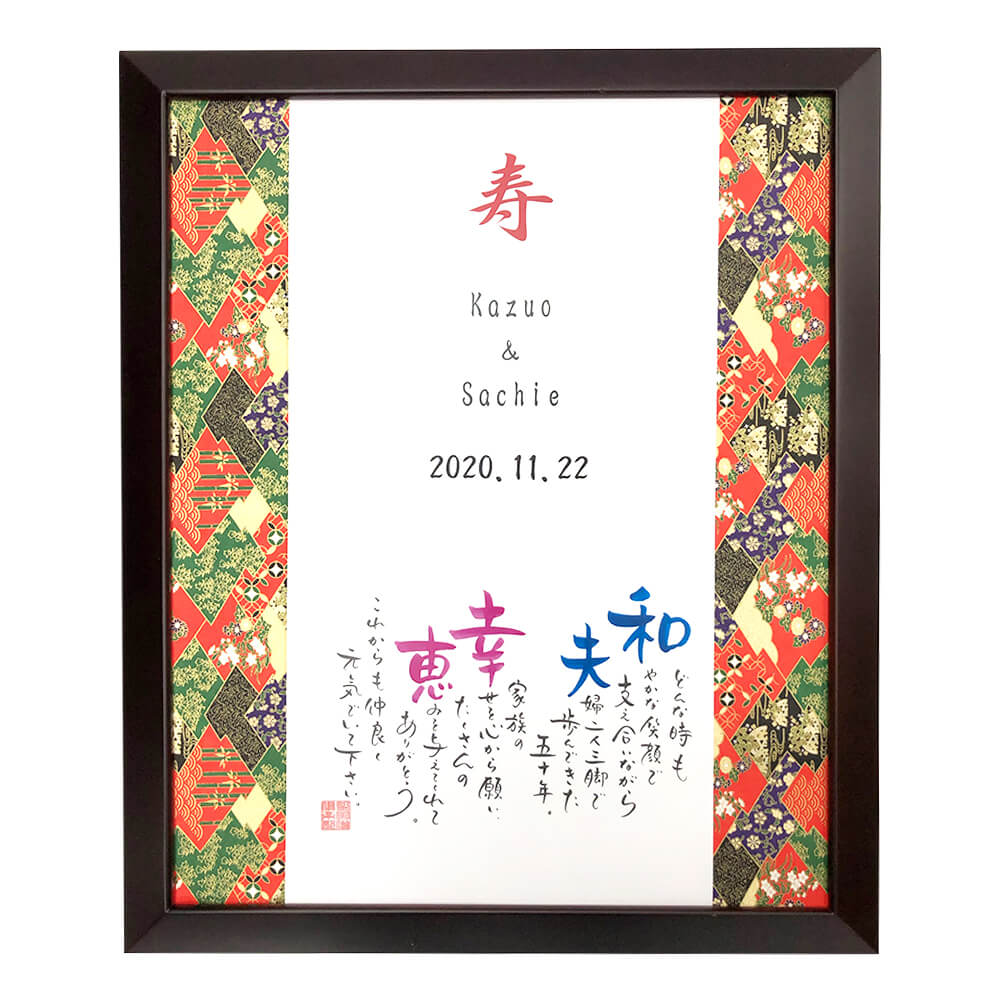 寿
Kazuo
&
Sachie
2020.11.22
どんな時も
和やかな笑顔で
支え合いながら
夫婦二人三脚で
歩んできた
五十年。
家族の
幸せを心から願い
たくさんの
恵みを与えてくれて
ありがとう。
これからも仲良く
元気でいて下さい。